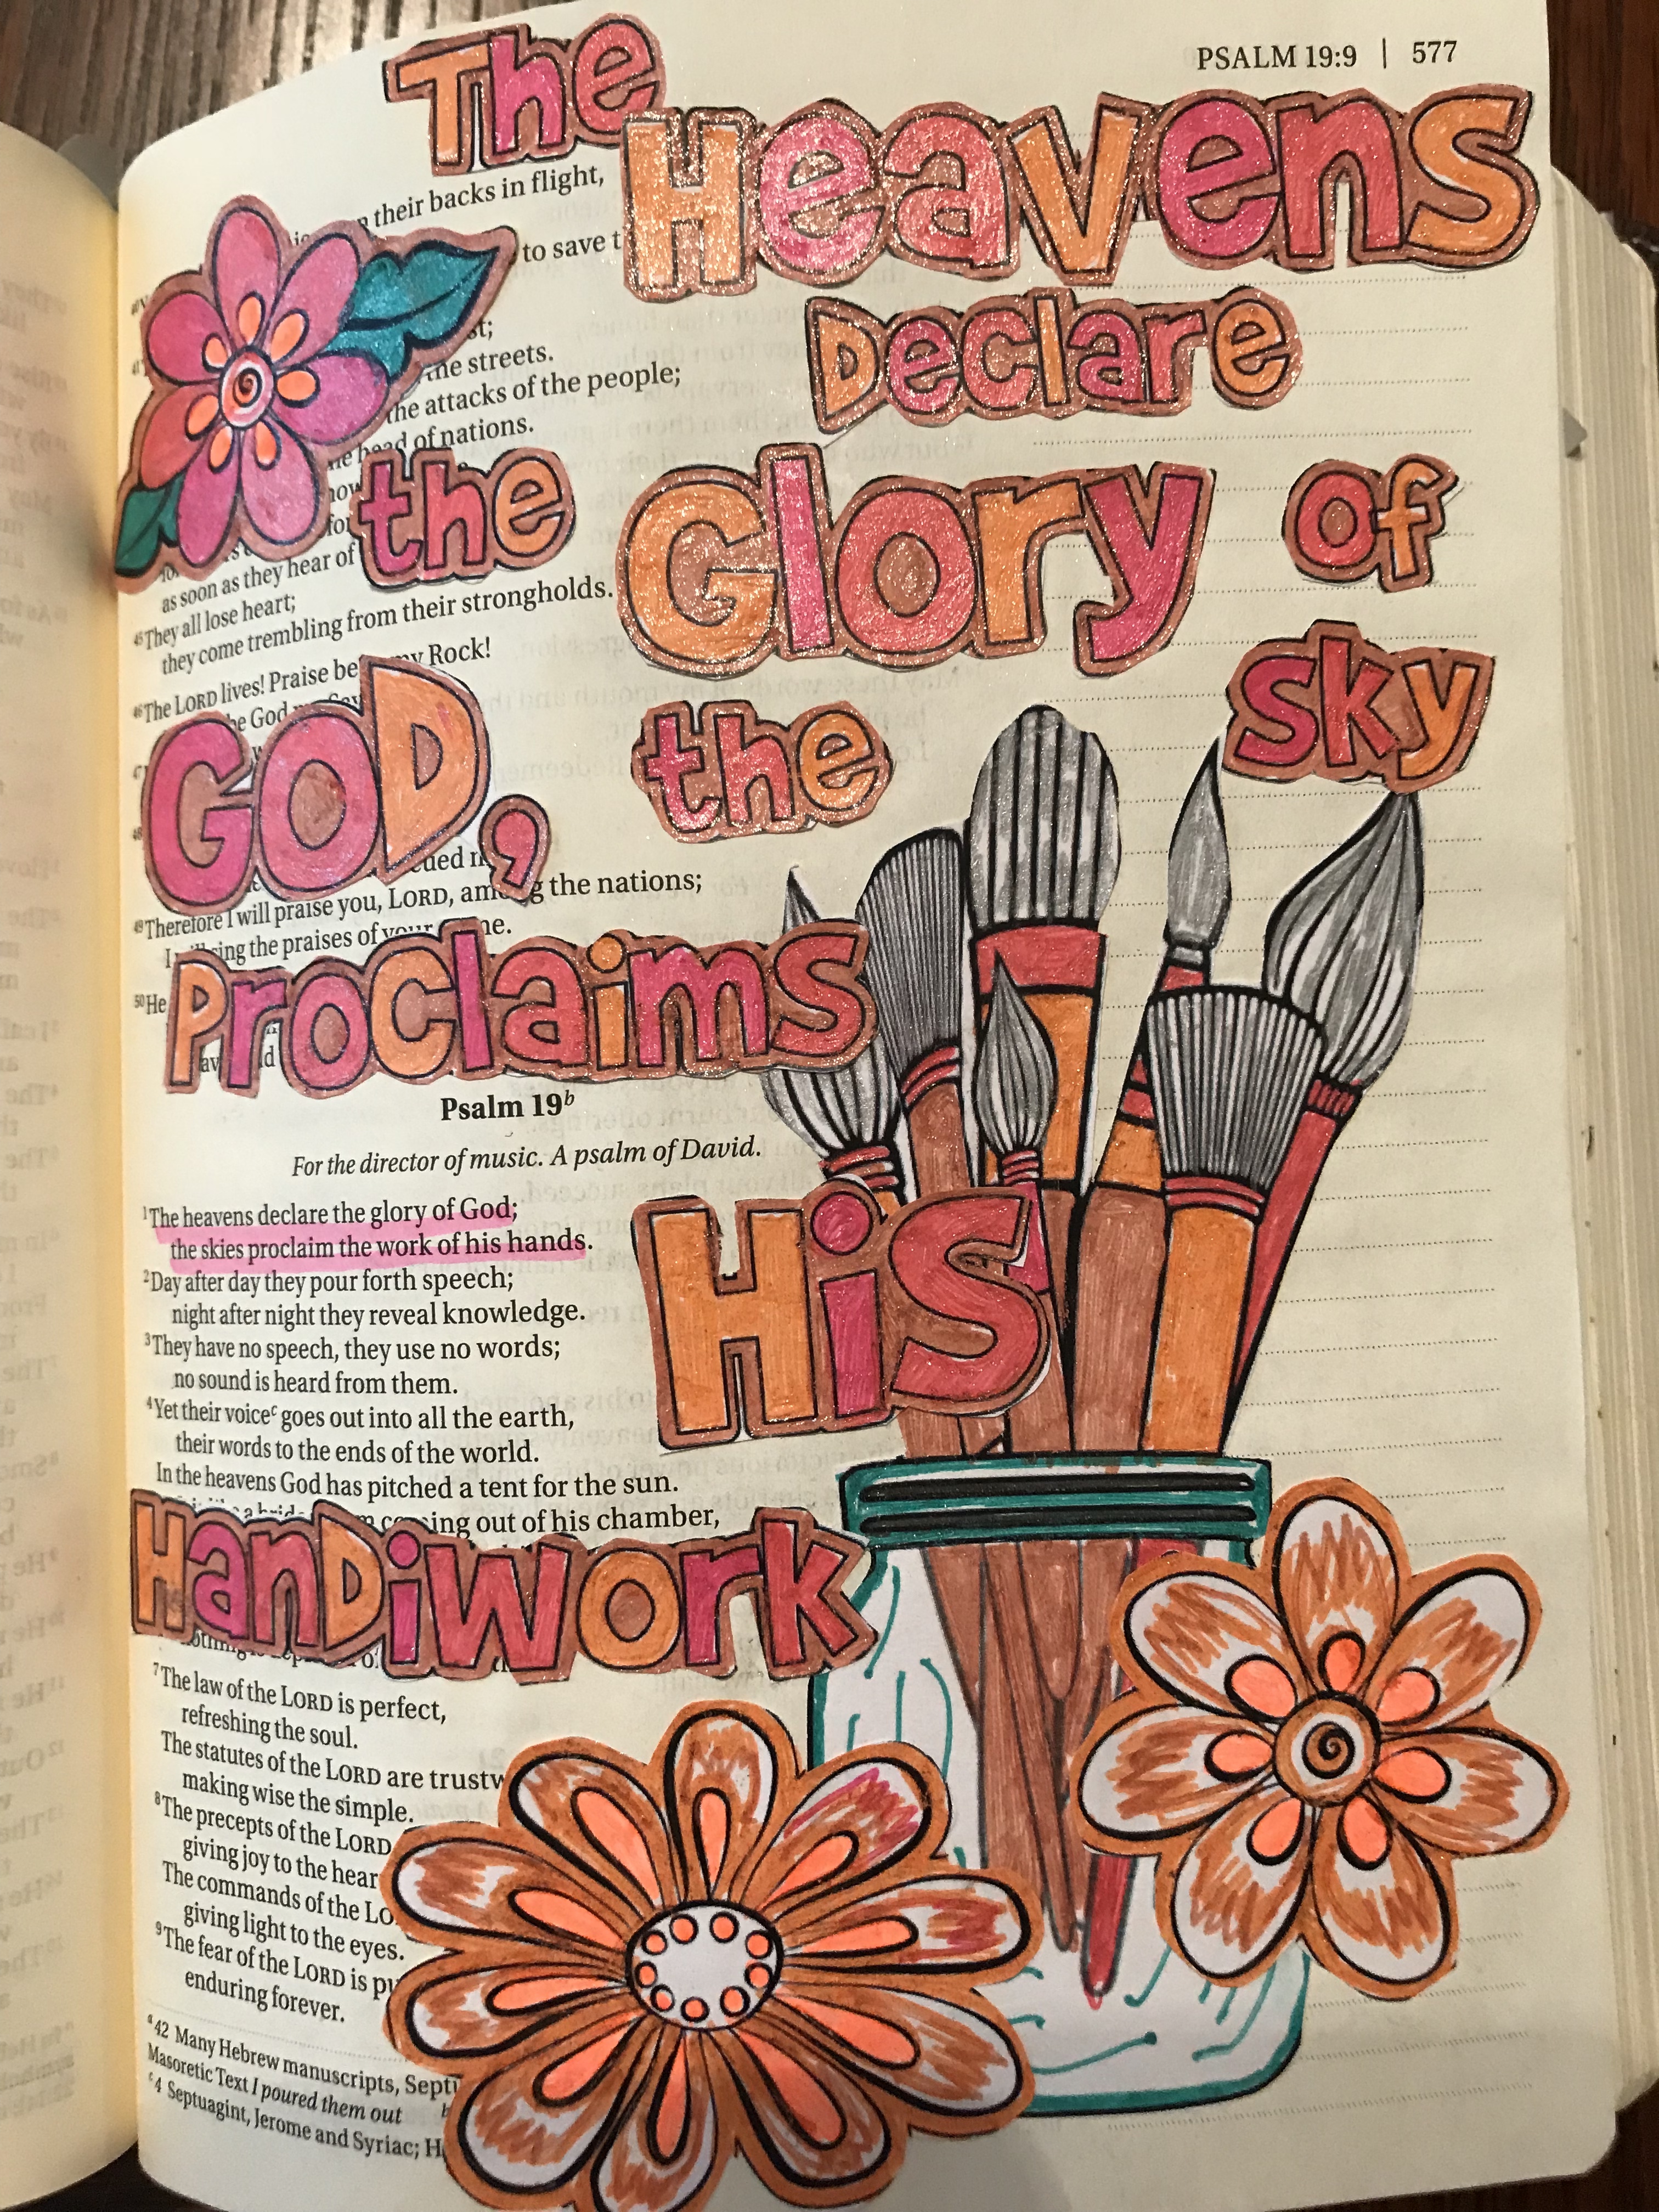 PSALM 19:9 | 577
The
Heavens
Declare
the Glory of
GOD, the sky
Proclaims
His
Handiwork
their backs in flight,
to save
the streets.
the attacks of the people;
of nations.
as soon as they hear of
45They all lose heart;
they come trembling from their strongholds.
46The LORD lives! Praise be my Rock!
God
49Therefore I will praise you, LORD, among the nations;
the praises of
50He
Psalm 19b
For the director of music. A psalm of David.
1The heavens declare the glory of God;
the skies proclaim the work of his hands.
2Day after day they pour forth speech;
night after night they reveal knowledge.
3They have no speech, they use no words;
no sound is heard from them.
4Yet their voicec goes out into all the earth,
their words to the ends of the world.
In the heavens God has pitched a tent for the sun.
out of his chamber,
7The law of the LORD is perfect,
refreshing the soul.
The statutes of the LORD are
making wise the simple.
8The precepts of the LORD
giving joy to the
The commands of the
giving light to the eyes.
9The fear of the LORD is
enduring forever.
a42 Many Hebrew manuscripts,
Masoretic Text I poured them out
c4 Septuagint, Jerome and Syriac;